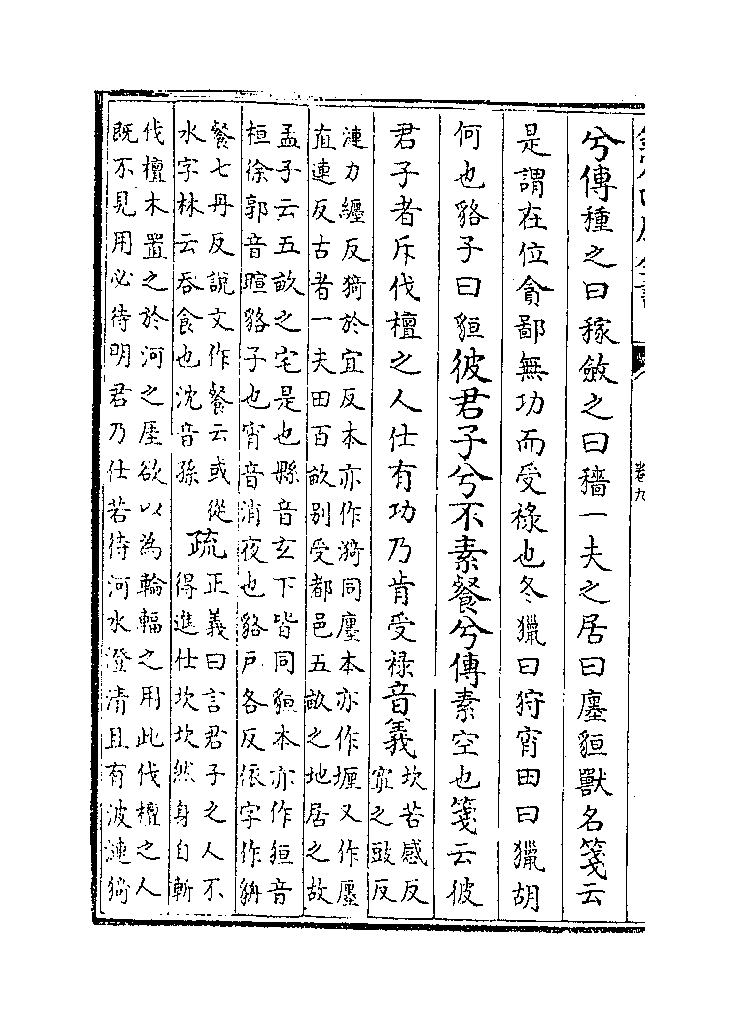 卷九
兮傳種之曰稼斂之曰穡一夫之居曰廛貆獸名箋云
是謂在位貪鄙無功而受祿也冬獵曰狩宵田曰獵胡
何也貉子曰貆彼君子兮不素餐兮傳素空也箋云彼
君子者斥伐檀之人仕有功乃肯受祿音義坎苦感反
寘之豉反
漣力纏反猗於宜反本亦作漪同廛本亦作壥又作㕓
直連反古者一夫田百畝别受都邑五畝之地居之故
孟子云五畝之宅是也縣音玄下皆同貆本亦作狟音
桓徐郭音暄貉子也宵音消夜也貉戶各反依字作貈
餐七丹反說文作餐云或從
水字林云吞食也沈音孫
疏正義曰言君子之人不
得進仕坎坎然身自斬
伐檀木置之於河之厓欲以為輪輻之用此伐檀之人
既不見用必待明君乃仕若待河水澄清且有波漣猗